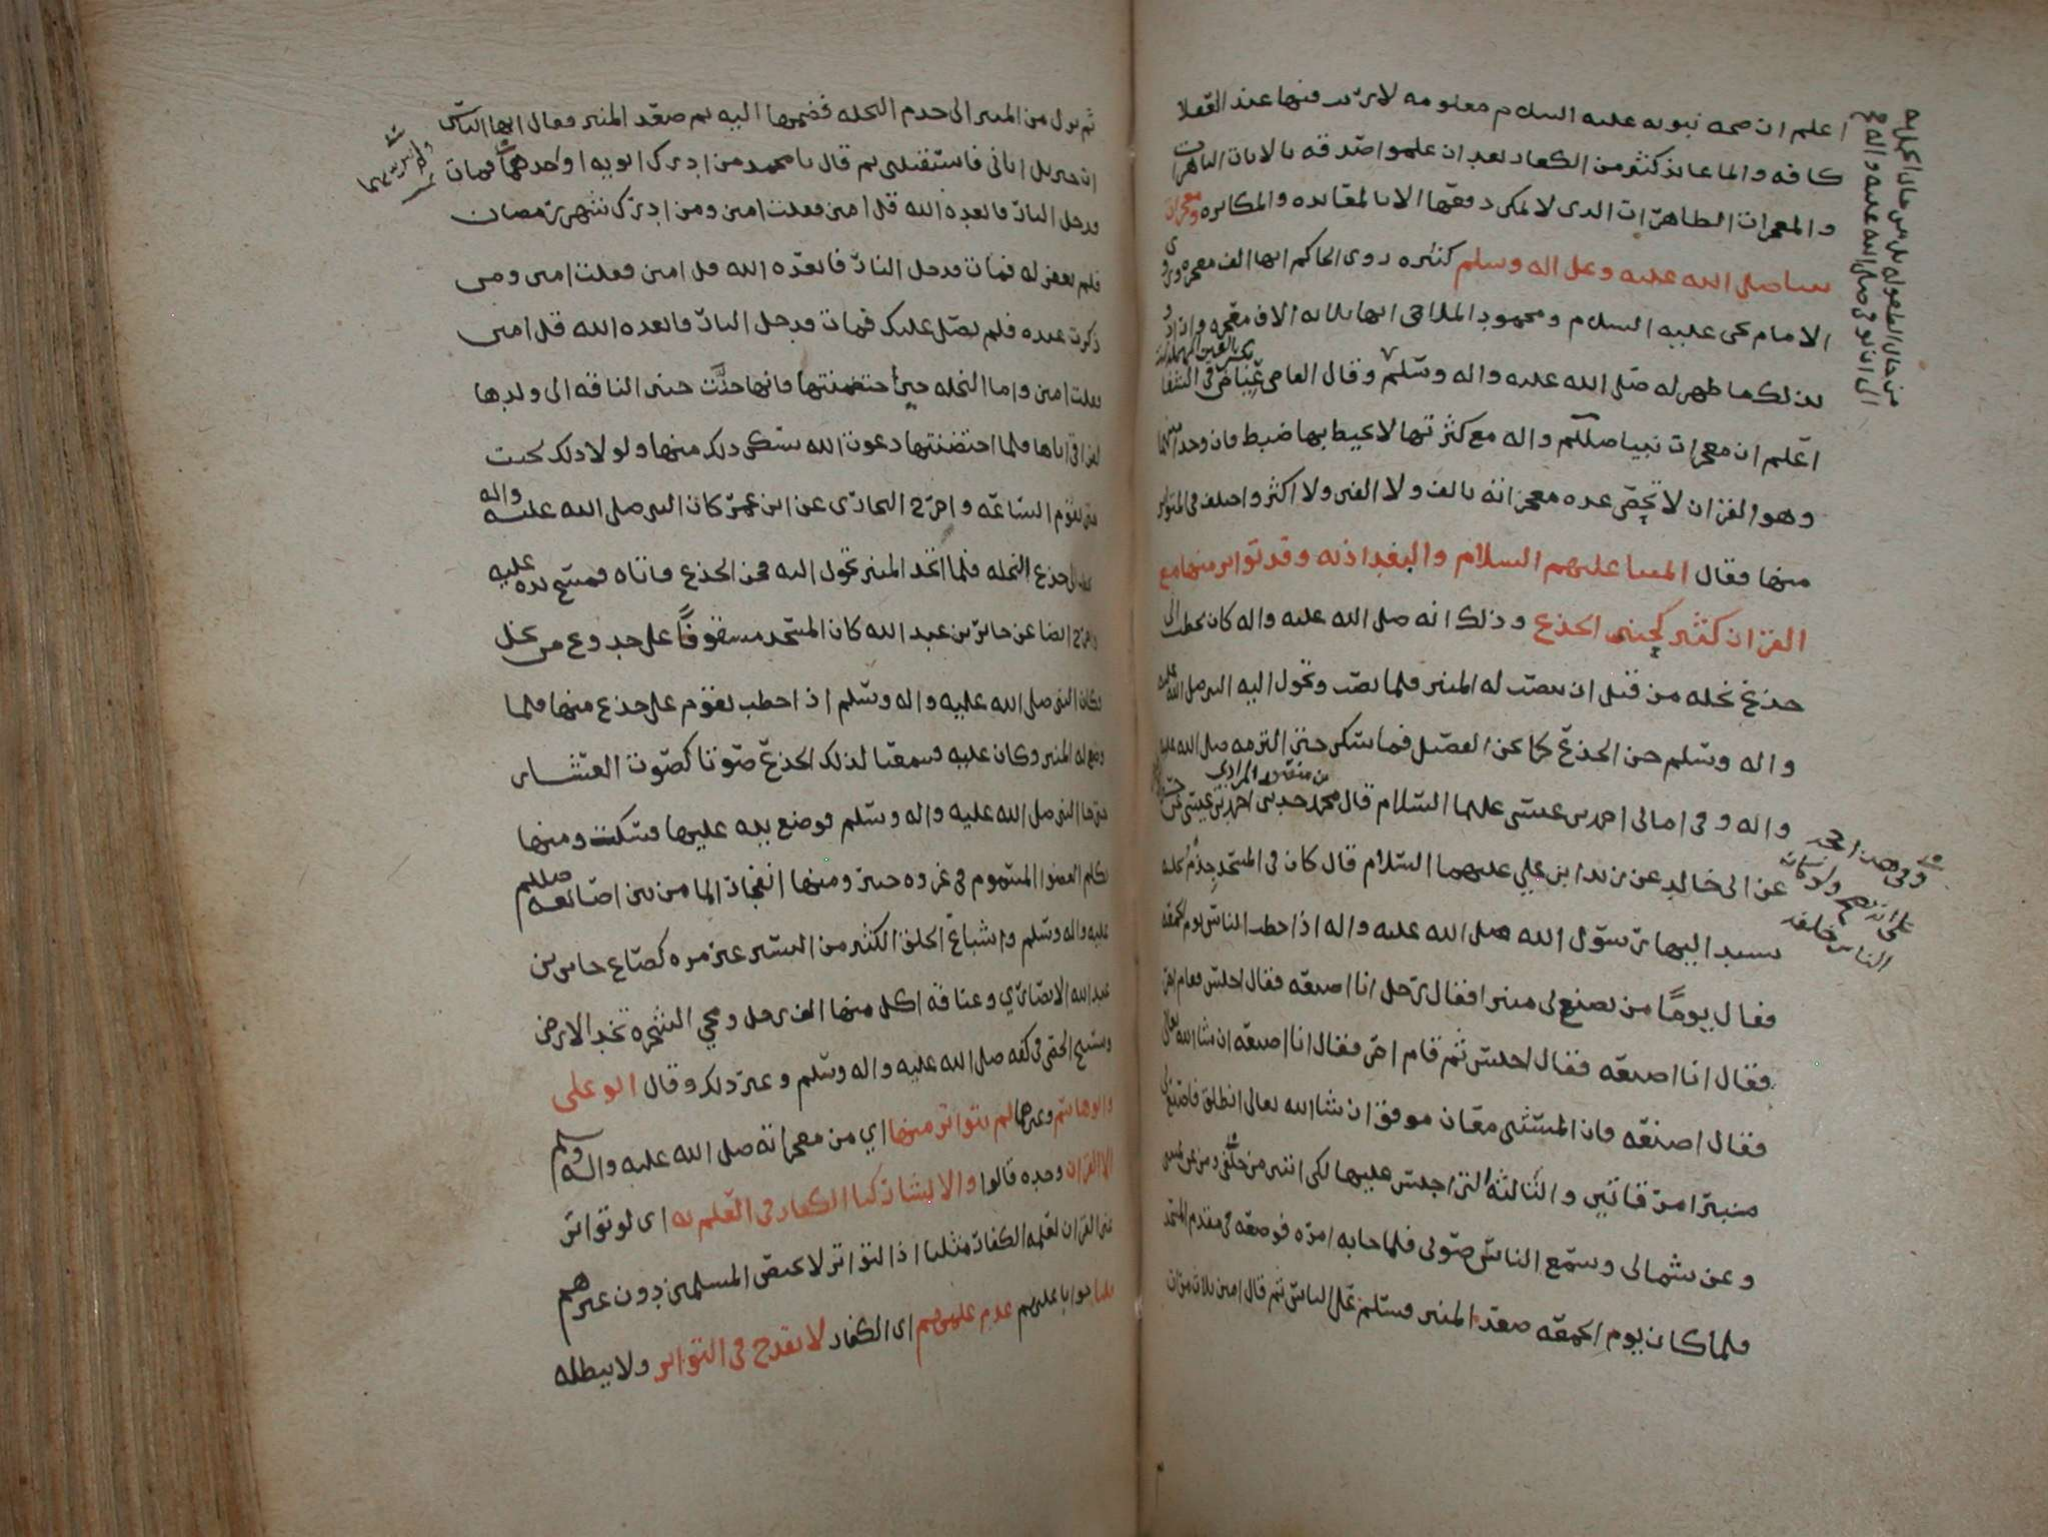 اعلم ان صحه نبوته عليه السلام معلومه لا يرتاب فيها عند العقلا
كافه وانما عاند كثير من الكفار بعد ان علموا صدقه بالايات الباهرات
والمعجزات الظاهرات الذي لا يمكن دفعها الا بالمعانده والمكابره ومعجزات
نبينا صلى الله عليه وعلى اله وسلم كثيره روى الحاكم انها الف معجزه وروى
الامام يحيى عليه السلام ومحمود الملاحمي انها ثلاثه الاف معجزه وان
بذلك ما ظهر له صلى الله عليه واله وسلم وقال القاضي عياض في الشفا
اعلم ان معجزات نبينا صللم واله مع كثرتها لا يحيط بها ضبط فان واحدا منها
وهو القران لا تحصى عده معجزاته بالف ولا الفين ولا اكثر واختلف في المتواتر
منها فقال ائمتنا عليهم السلام والبغداذيه وقد تواتر منها مع
القران كثير كحنين الجذع وذلك انه صلى الله عليه واله كان يخطب الى
جذع نخله من قبل ان ينصب له المنبر فلما نصب وتحول اليه النبي صلى الله عليه
واله وسلم حن الجذع كما يحن الفصيل فما سكن حتى التزمه صلى الله عليه
واله وفي امالي احمد بن عيسى عليهما السلام قال محمد بن منصور المرادي حدثني احمد بن عيسى عن
عن ابي خالد عن زيد ابن علي عليهما السلام قال كان في المسجد جذم نخله
يسند اليها رسول الله صلى الله عليه واله اذا خطب الناس يوم الجمعه
فقال يوما من يصنع لي منبرا فقال رجل انا اصنعه فقال اجلس فقام اخر
فقال انا اصنعه فقال اجلس ثم قام اخر فقال انا اصنعه ان شا الله تعالى
فقال اصنعه فان المستثني معان موفق ان شا الله تعالى انطلق فاصنع لي
منبرا مرقاتين والثالثه التي اجلس عليها لكي انتبر من خلفي ومن عن يميني
وعن شمالي وسمع الناس صوتي فلما جا به امره فوضعه في مقدم المسجد
فلما كان يوم الجمعه صعد المنبر فسلم على الناس ثم قال امين ثلاث مرات
ثم نزل من المنبر الى جذم النخله فضمها اليه ثم صعد المنبر فقال ايها الناس
ان جبريل اتاني فاستقبلني ثم قال يا محمد من ادرك ابويه او احدهما فمات
فدخل النار فابعده الله قل امين فقلت امين ومن ادرك شهر رمضان
فلم يغفر له فمات فدخل النار فابعده الله قل امين فقلت امين ومن
ذكرت عنده فلم يصل عليك فمات فدخل النار فابعده الله قل امين
فقلت امين واما النخله حين احتضنتها فانها حنت حنين الناقه الى ولدها
لفراقي اياها فلما احتضنتها دعوت الله سكن ذلك منها ولولا ذلك لحنت
حتى تقوم الساعه واخرج البخاري عن ابن عمر كان النبي صلى الله عليه واله
يخطب الى جذع النخله فلما اتخذ المنبر تحول اليه فحن الجذع فاتاه فمسح يده عليه
واخرج ايضا عن جابر بن عبد الله كان المسجد مسقوفا على جذوع من نخل
فكان النبي صلى الله عليه واله وسلم اذا خطب يقوم على جذع منها فلما
وضع له المنبر وكان عليه فسمعنا لذلك الجذع صوتا كصوت العشار
حتى جا النبي صلى الله عليه واله وسلم فوضع يده عليها فسكنت ومنها
تكلم العضو المسموم في غزوه خيبر ومنها انفجار الما من بين اصابعه صللم
عليه واله وسلم واشباع الخلق الكثير من اليسير غير مره كصاع جابر بن
عبد الله الانصاري وعناقه اكل منها الف رجل ومجي الشجره تخد الارض
وتسبيح الحصى في كفه صلى الله عليه واله وسلم وغير ذلك وقال ابو علي
وابو هاشم وغيرهما لم يتواتر منها اي من معجزاته صلى الله عليه واله وسلم
الا القران وحده قالوا والا لشاركنا الكفار في العلم به اي لو تواتر
غير القران لعلمه الكفار مثلنا اذ التواتر لا يخص المسلمين دون غيرهم
قلنا جوابا عليهم عدم علمهم اي الكفار لا يقدح في التواتر ولا يبطله